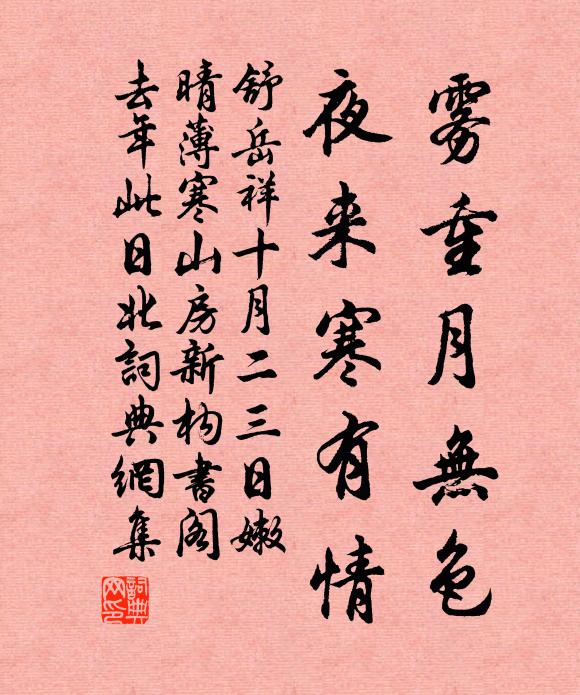 雾重月無色
夜来寒有情
舒岳祥十月二三日嫩
晴薄寒山房新构書阁
去年此日北詞典網集
詞典
网印